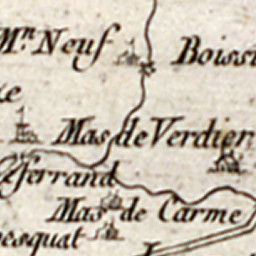 Mⁿ Neuf
Boissi
Mas de Verdier
ferrand
Mas de Carme
esquat